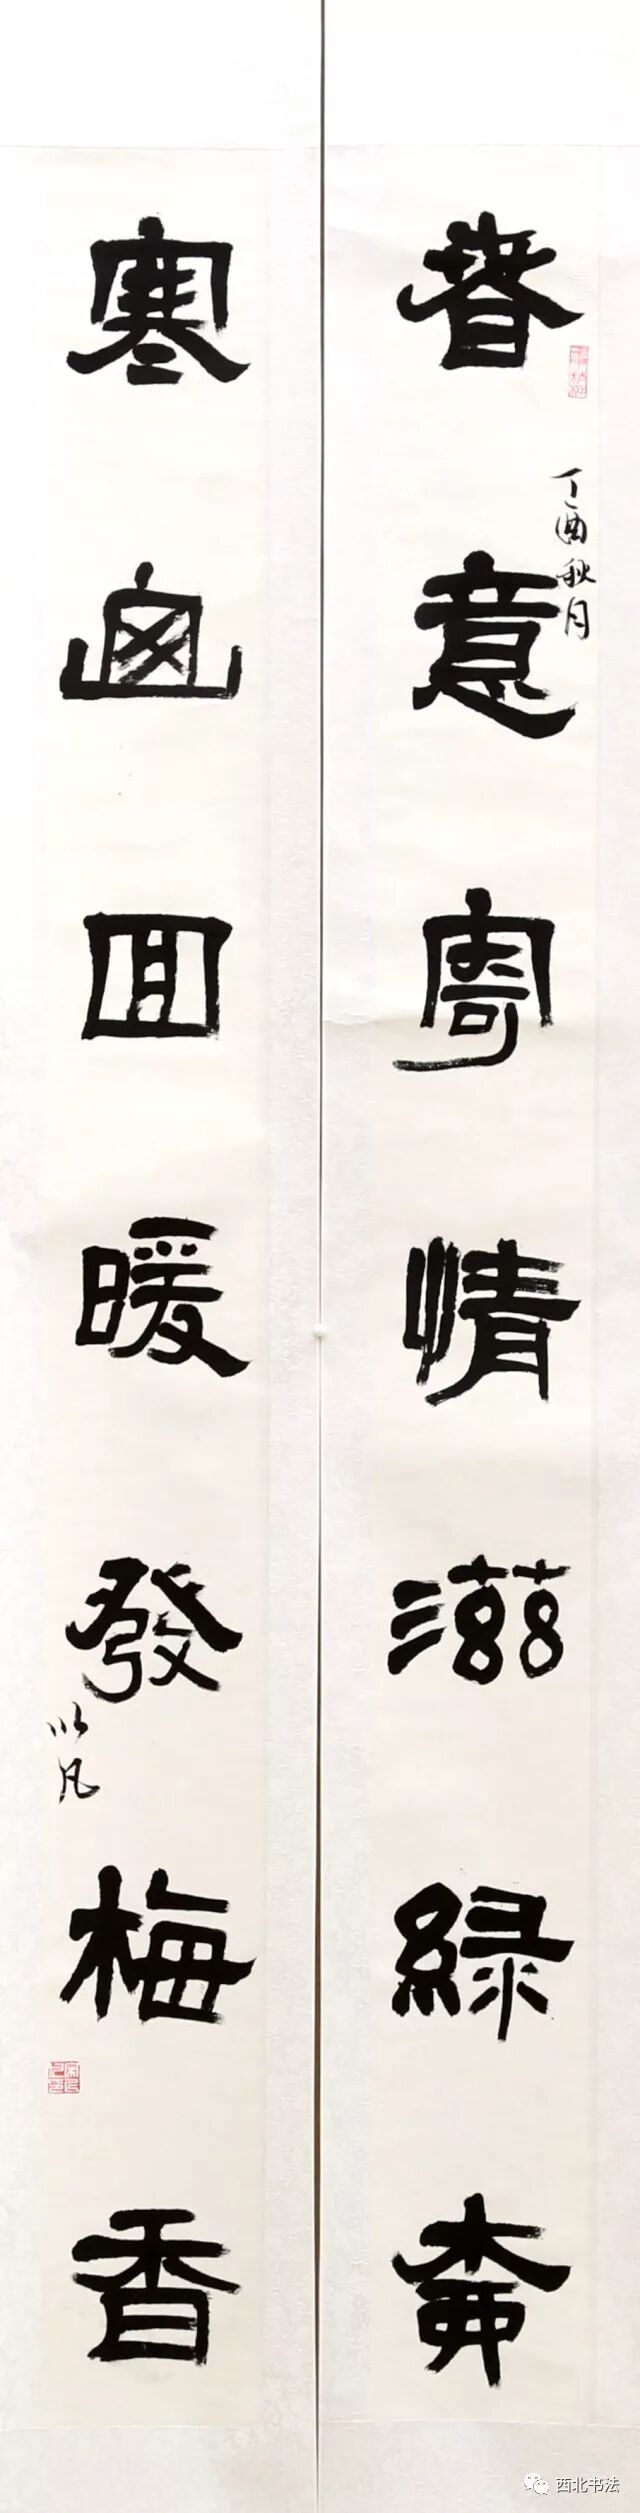 春意寄情滋綠
丁酉秋月
寒回暖發梅香
以凡
西北书法